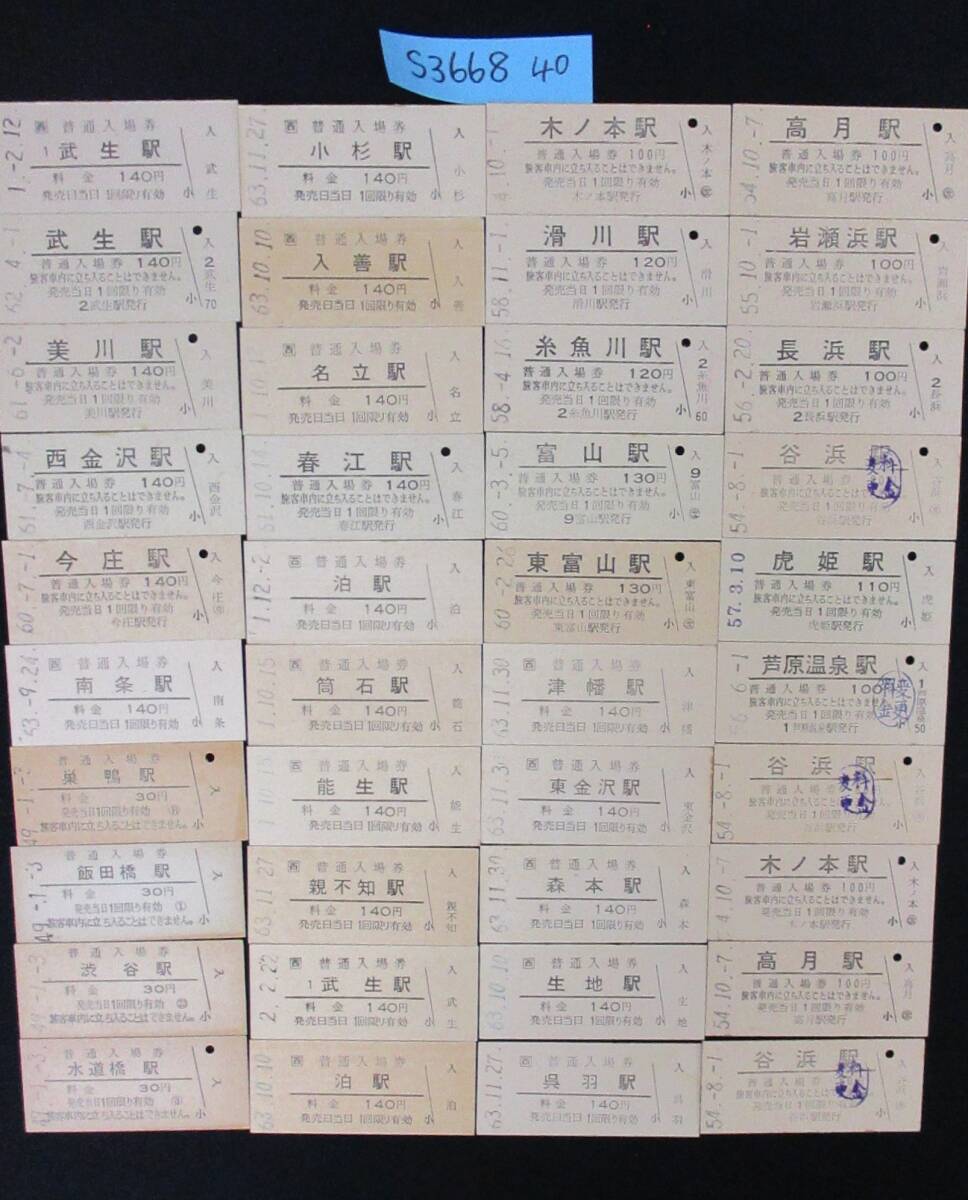 S3668 40
1.-2.12
西 普通入場券
1 武生駅
料金 140円
発売日当日1回限り有効
小
入
武生
62.-4.-1
武生駅
普通入場券 140円
旅客車内に立ち入ることはできません。
発売当日1回限り有効
2武生駅発行
小
入
2
武生
70
61.-6.-2
美川駅
普通入場券 140円
旅客車内に立ち入ることはできません。
発売当日1回限り有効
美川駅発行
小
入
美川
61.-7.-4
西金沢駅
普通入場券 140円
旅客車内に立ち入ることはできません。
発売当日1回限り有効
西金沢駅発行
小
入
西金沢
60.-7.-1
今庄駅
普通入場券 140円
旅客車内に立ち入ることはできません。
発売当日1回限り有効
今庄駅発行
小
入
今庄
63.-9.24
西 普通入場券
南条駅
料金 140円
発売日当日1回限り有効
小
入
南条
49.-1.-3
普通入場券
巣鴨駅
料金 30円
発売当日1回限り有効
旅客車内に立ち入ることはできません。
小
入
49.-1.-3
普通入場券
飯田橋駅
料金 30円
発売当日1回限り有効 ①
旅客車内に立ち入ることはできません。
小
入
49.-1.-3
普通入場券
渋谷駅
料金 30円
発売当日1回限り有効
旅客車内に立ち入ることはできません。
小
入
普通入場券
水道橋駅
料金 30円
発売当日1回限り有効
旅客車内に立ち入ることはできません。
小
入
63.11.27
西 普通入場券
小杉駅
料金 140円
発売日当日1回限り有効
小
入
小杉
63.10.10
西 普通入場券
入善駅
料金 140円
発売日当日1回限り有効
小
入
入善
1.10.1
西 普通入場券
名立駅
料金 140円
発売日当日1回限り有効
小
入
名立
61.10.14
春江駅
普通入場券 140円
旅客車内に立ち入ることはできません。
発売当日1回限り有効
春江駅発行
小
入
春江
1.12.-2
西 普通入場券
泊駅
料金 140円
発売日当日1回限り有効
小
入
泊
1.10.15
西 普通入場券
筒石駅
料金 140円
発売日当日1回限り有効
小
入
筒石
1.10.15
西 普通入場券
能生駅
料金 140円
発売日当日1回限り有効
小
入
能生
63.11.27
西 普通入場券
親不知駅
料金 140円
発売日当日1回限り有効
小
入
親不知
2.-2.22
西 普通入場券
1 武生駅
料金 140円
発売日当日1回限り有効
小
入
武生
63.10.10
西 普通入場券
泊駅
料金 140円
発売日当日1回限り有効
小
入
泊
4.10.-7
木ノ本駅
普通入場券 100円
旅客車内に立ち入ることはできません。
発売当日1回限り有効
木ノ本駅発行
小
入
木ノ本
58.11.-1
滑川駅
普通入場券 120円
旅客車内に立ち入ることはできません。
発売当日1回限り有効
滑川駅発行
小
入
滑川
58.-4.16
糸魚川駅
普通入場券 120円
旅客車内に立ち入ることはできません。
発売当日1回限り有効
2糸魚川駅発行
小
入
2
糸魚川
60
60.-3.-5
富山駅
普通入場券 130円
旅客車内に立ち入ることはできません。
発売当日1回限り有効
9富山駅発行
小
入
9
富山
60.-2.26
東富山駅
普通入場券 130円
旅客車内に立ち入ることはできません。
発売当日1回限り有効
東富山駅発行
小
入
東富山
63.11.30
西 普通入場券
津幡駅
料金 140円
発売日当日1回限り有効
小
入
津幡
63.11.30
西 普通入場券
東金沢駅
料金 140円
発売日当日1回限り有効
小
入
東金沢
63.11.30
西 普通入場券
森本駅
料金 140円
発売日当日1回限り有効
小
入
森本
63.10.10
西 普通入場券
生地駅
料金 140円
発売日当日1回限り有効
小
入
生地
63.11.27
西 普通入場券
呉羽駅
料金 140円
発売日当日1回限り有効
小
入
呉羽
54.10.-7
高月駅
普通入場券 100円
旅客車内に立ち入ることはできません。
発売当日1回限り有効
高月駅発行
小
入
高月
55.10.-1
岩瀬浜駅
普通入場券 100円
旅客車内に立ち入ることはできません。
発売当日1回限り有効
岩瀬浜駅発行
小
入
岩瀬浜
56.-2.20
長浜駅
普通入場券 100円
旅客車内に立ち入ることはできません。
発売当日1回限り有効
2長浜駅発行
小
入
2
長浜
54.-8.-1
谷浜駅
料金変更
普通入場券
旅客車内に立ち入ることはできません。
発売当日1回限り有効
谷浜駅発行
小
入
谷浜
57.3.10
虎姫駅
普通入場券 110円
旅客車内に立ち入ることはできません。
発売当日1回限り有効
虎姫駅発行
小
入
虎姫
56.6.-1
芦原温泉駅
普通入場券 100円
旅客車内に立ち入ることはできません。
発売当日1回限り有効
1芦原温泉駅発行
料金変更
小
入
1
芦原温泉
50
54.-8.-1
谷浜駅
料金変更
普通入場券
旅客車内に立ち入ることはできません。
発売当日1回限り有効
谷浜駅発行
小
入
谷浜
4.10.-7
木ノ本駅
普通入場券 100円
旅客車内に立ち入ることはできません。
発売当日1回限り有効
木ノ本駅発行
小
入
木ノ本
54.10.-7
高月駅
普通入場券 100円
旅客車内に立ち入ることはできません。
発売当日1回限り有効
高月駅発行
小
入
高月
54.-8.-1
谷浜駅
料金変更
普通入場券
旅客車内に立ち入ることはできません。
発売当日1回限り有効
谷浜駅発行
小
入
谷浜